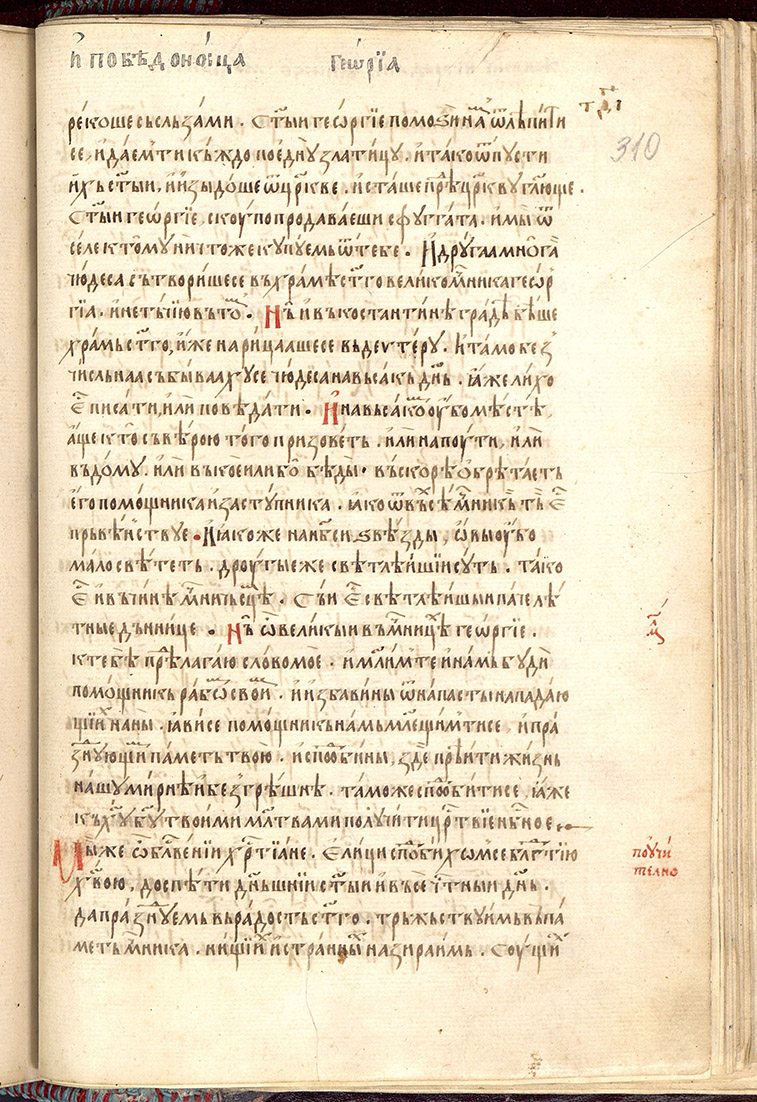 и҆ побѣдоно́сца гео́рїа
т҃ꙵ
310
реко́ше сьслъза́ми . Ст҃ыи гео́ргїе помоꙁи на ѿлѣпити
се , и҆ да́ем ти къ́ждо по є҆ди́у зла́тицу . и҆ тако ѿпусти
и҆хъ ст҃ыи , и҆ и҆зыдо́ше ѿ цр҃кве . и҆ ста́ше прⷣѣ цр҃квꙋ гл҃юще .
Ст҃ыи гео́ргїе , скоу́по продава́еши сфꙋггата . и҆ мы́ ѿ
се́ле к то́му ничто́же кꙋпꙋемь ѿ тебе . И҆ дрꙋ́гаа мно́гаа
чюдеса̀ сьтвори́шесе въ хра́мѣ ст҃го вели́комⷱ҇ника гео́р
гїа . Нь̀ и҆ въ ко́стантинѣ гра́дѣ бѣ́ше
хра́мь ст҃го , и҆́же на́рицаашесе въ деѵте́рꙋ . и҆ та́мо без
чи́сльнаа събыва́ахꙋсе чюдеса̀ на вьса́къ дн҃ь . ꙗ҆́же ли́хо
є҆ⷭ писа́ти , и҆лѝ повѣ́дати . И҆ на вьса́комь оу҆́бо мѣ́стѣ ,
а҆́ще кто̀ съ вѣ́рою того̀ призове́ть . и҆лѝ на поу́ти , и҆лѝ
въ до́мꙋ . и҆лѝ въ ко́еи либо бѣды̀ . въ́скорѣ ѡ҆брѣта́еть
є҆го̀ помо́щника и҆ засту́пника . ꙗ҆́ко ѿ въ́сѣ мⷱ҇никь тъ̀ є҆ⷭ
прьвѣ́иствꙋе . И҆ ꙗ҆́коже на нб҃си ѕвѣзды̀ , ѡ҆вы оу҆́бо
ма́ло свѣ́теть . дроу́гые же свѣтлѣ́ишїи сꙋ́ть . та́ко
є҆ⷭ и҆ въ чи́нѣ мⷱ҇ничьсцѣ . Съ́и є҆ⷭ свѣтлѣ́ишыи па́че лѣ́
тные дьнни́це . Нь̀ ѽ вели́кыи въ мⷱ҇ницѣ гео́ргїе .
к тебѣ̀ прѣла́гаю сло́во моѐ . и҆ мл҃им те и҆ на́мь бꙋ́ди
помо́щникь рабѡ́мь свои́мь . и҆ и҆зба́ви ны ѿ напа́сты на́падаю
щїихь на ны̀ . ꙗ҆ви́се помо́щникъ на́мь мл҃ещимтисе , и҆ пра́
знꙋющїи па́меть твою̀ . и҆ спо́би ны , здѐ прѣ́ити жи́знь
на́шꙋ ми́рнѣ и҆ без грѣ́шнѣ . та́може спо́битисе , ꙗ҆́же
къ хꙋ҃ бг҃ꙋ твои́ми мл҃твами полꙋчи́ти црⷭ҇твїе нбⷭ҇ное
Мы́ же ѡ҆ бл҃гⷭ҇ве́нїи хрⷭ҇тїа́не . Е҆ли́ци спо́бихомсе блг҃тїю
хв҃ою , доспѣ́ти дн҃ьшнїи ст҃ыи и҆ въсечⷭ҇тныи дн҃ь .
да пра́знꙋемь въ ра́дость ст҃го . трьжьствꙋ́имь въ па́
меть мⷱ҇ника . ни́щїихь и҆ стра́нныхь назира́имь . Соу́щїихь
поꙋчи
телно